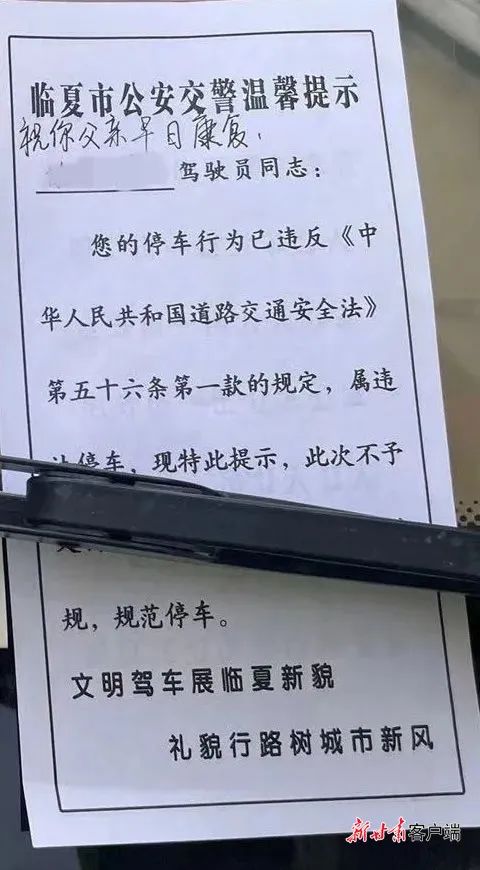 临夏市公安交警温馨提示
祝你父亲早日康复!
驾驶员同志：
您的停车行为已违反《中
华人民共和国道路交通安全法》
第五十六条第一款的规定，属违
停车，现特此提示，此次不予
规，规范停车。
文明驾车展临夏新貌
礼貌行路树城市新风
新甘肃客户端